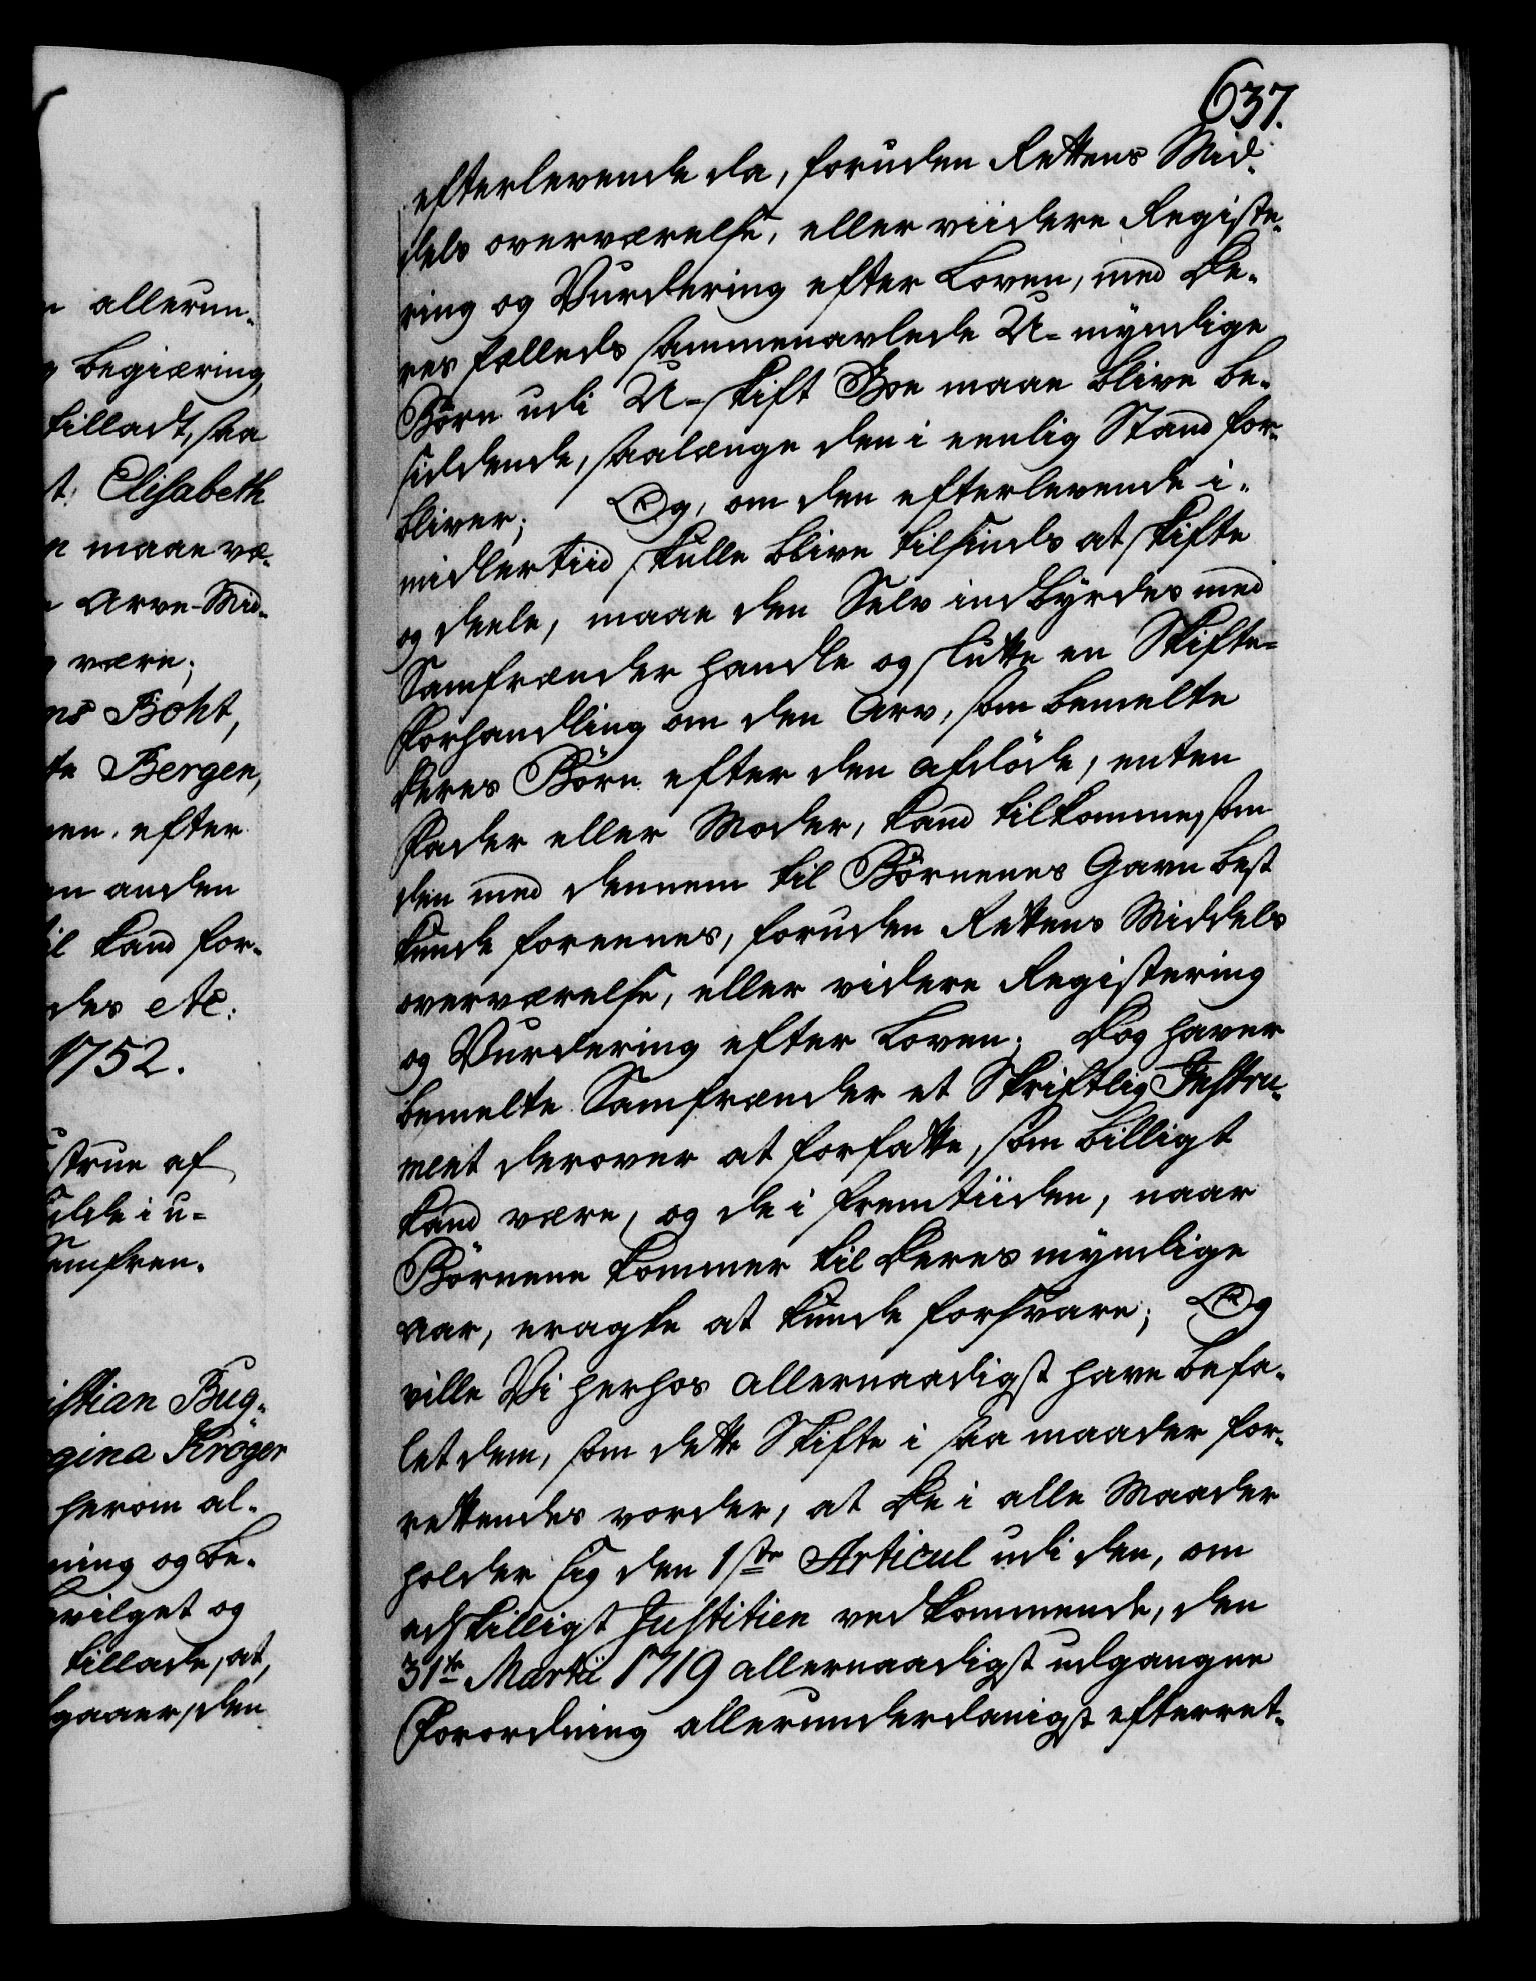 allerun-
begiæring,
tilladt, saa
Elisabeth
maae væ-
Arve-Mid-
være;
Boht,
Bergen,
efter
anden
kand for-
des etc:
1752.
af
i u-
Bug-
Kröger
herom al-
og be-
og
tillade, at,
den
637.
efterlevende da, foruden Rettens Mid-
dels overværelse, eller viidere Registe-
ring og Vurdering efter Loven, med De-
res fælleds sammenavlede U-myndige
Börn udi U-skift Boe maae blive be-
siddende, saalænge den i eenlig Stand for-
bliver; Og, om den efterlevende i-
midlertiid skulle blive tilsinds at skifte
og deele, maae den Selv indbyrdes med
Samfrænder handle og slutte en Skifte-
Forhandling om den Arv, som bemelte
Deres Börn efter den afdöde, enten
Fader eller Moder, kand tilkomme, som
den med dennem til Börnenes Gavn best
kunde foreenes, foruden Rettens Middels
overværelse, eller videre Registering
og Vurdering efter Loven; Dog haver
bemelte Samfrænder et Skriftlig Instru-
ment derover at forfatte, som billigt
kand være, og de i fremtiiden, naar
Börnene kommer til Deres myndige
Aar, eragte at kunde forsvare; Og
ville Vi herhos allernaadigst have befa-
let dem, som dette Skifte i saa maader for-
rettendes vorder, at De i alle Maader
holder sig den 1ste Articul udi den, om
adskilligt Justitien vedkommende, den
31te Martii 1719 allernaadigst udgangne
Forordning allerunderdanigst efterret-